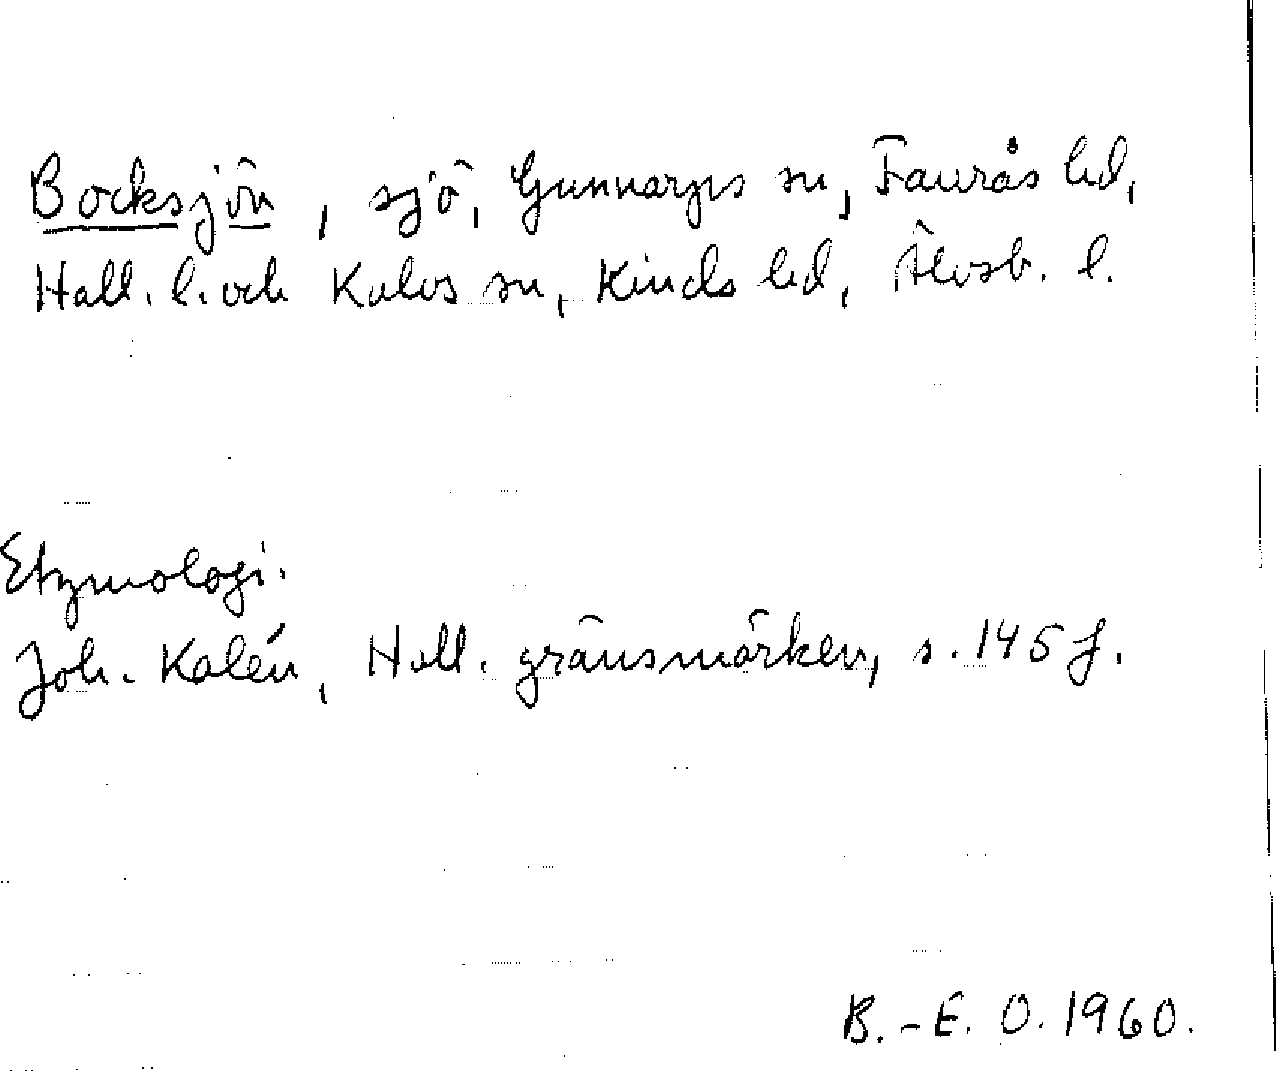 Bocksjön, sjö, Gunnarps sn, Faurås hd,
Hall. l. och Kalvs sn, Kinds hd, Älvsb. l.
Etymologi.
Joh. Kalén, Hall. gränsmärken, s. 145 f.
B.-E. O. 1960.